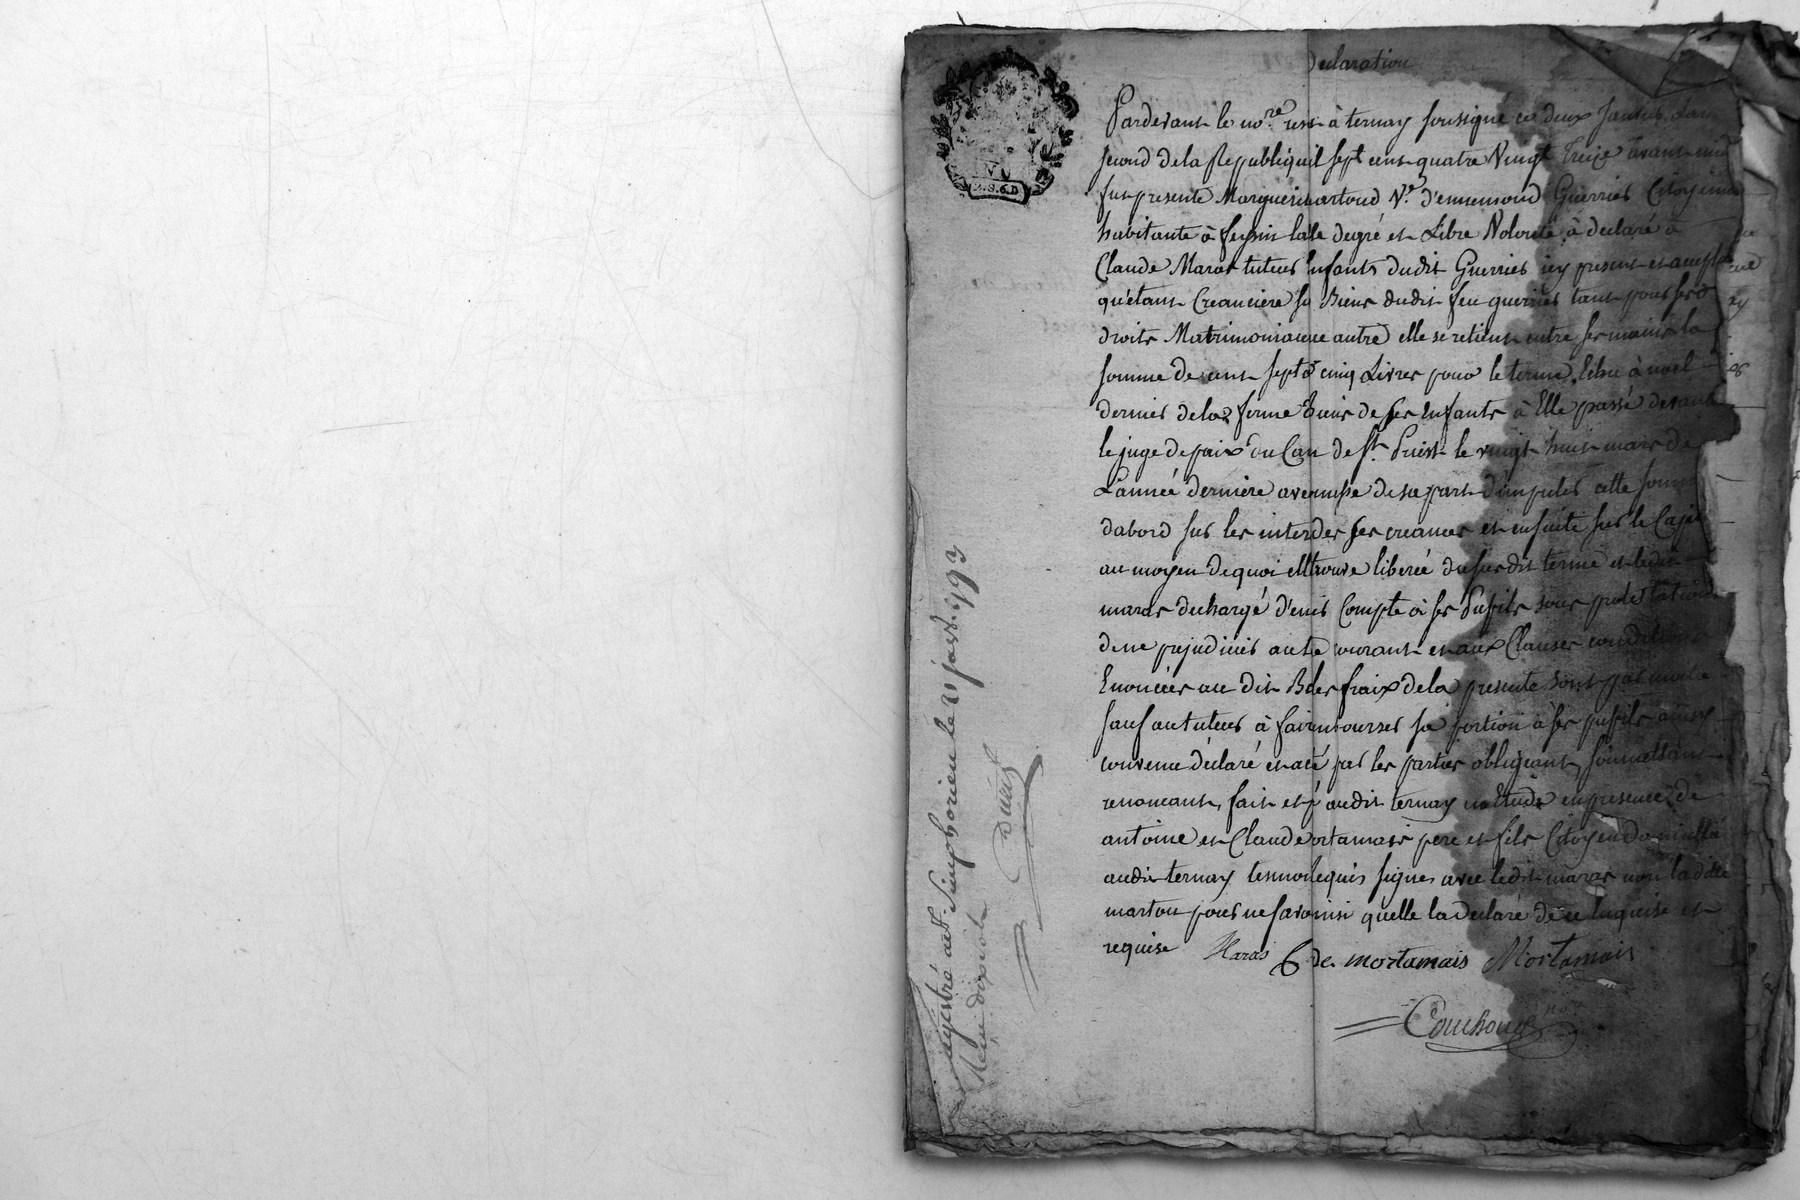 Declaration
Pardevant le no.re resi à ternay soussigné ce deux janvier Lan
second de la Republique il sept cent quatre Vingt Treize avant midi
fut presente Margueri martoud V.e d'ennemond Guerrier Citoyenne
habitante à feysin la le degré et Libre Volonté à declaré à
Claude Maras tuteur Enfants dudit Guerrier icy present et accept
qu'étant Creanciere s Biens dudit feu guerrier tant pour ses
droits Matrimoniaux autre elle se retient entre ses mains la
somme de cent sept cinq Livres pour le terme Echu à noel
dernier de la ferme Biens de ses Enfants à Elle passé devant
le juge de paix du Can de St. Priest le vingt huit mars de
L'année derniere avec de sa part d'imputer cette somme
dabord sur les inter des ses creances et ensuite sur le Capi
au moyen de quoi ell trouve liberée du susdit terme et ledit
maras dechargé d'enir Compte à ses Pupils sous protestation
de ne prejudicier au te courant et aux Clauses condition
Enoncées au dit B des fraix de la presente sont par moitié
sauf au tuteur à fair mbourser sa portion à ses pupils ainsy
convenu déclaré et acé par les parties obligeant, soumettant
renoncant, fait et p audit ternay Etude en presence de
antoine et Claude ortamais pere et fils Citoyen domicilié
audit ternay temoi requis signes avec ledit maras non ladite
martou pour ne savoir insi quelle la declaré de ce enquise et
requise Maras de mortamais Mortamais
Couchoud no.
enregistré à St. Simphorien le 21 janv. 1793
Reçu dix sols